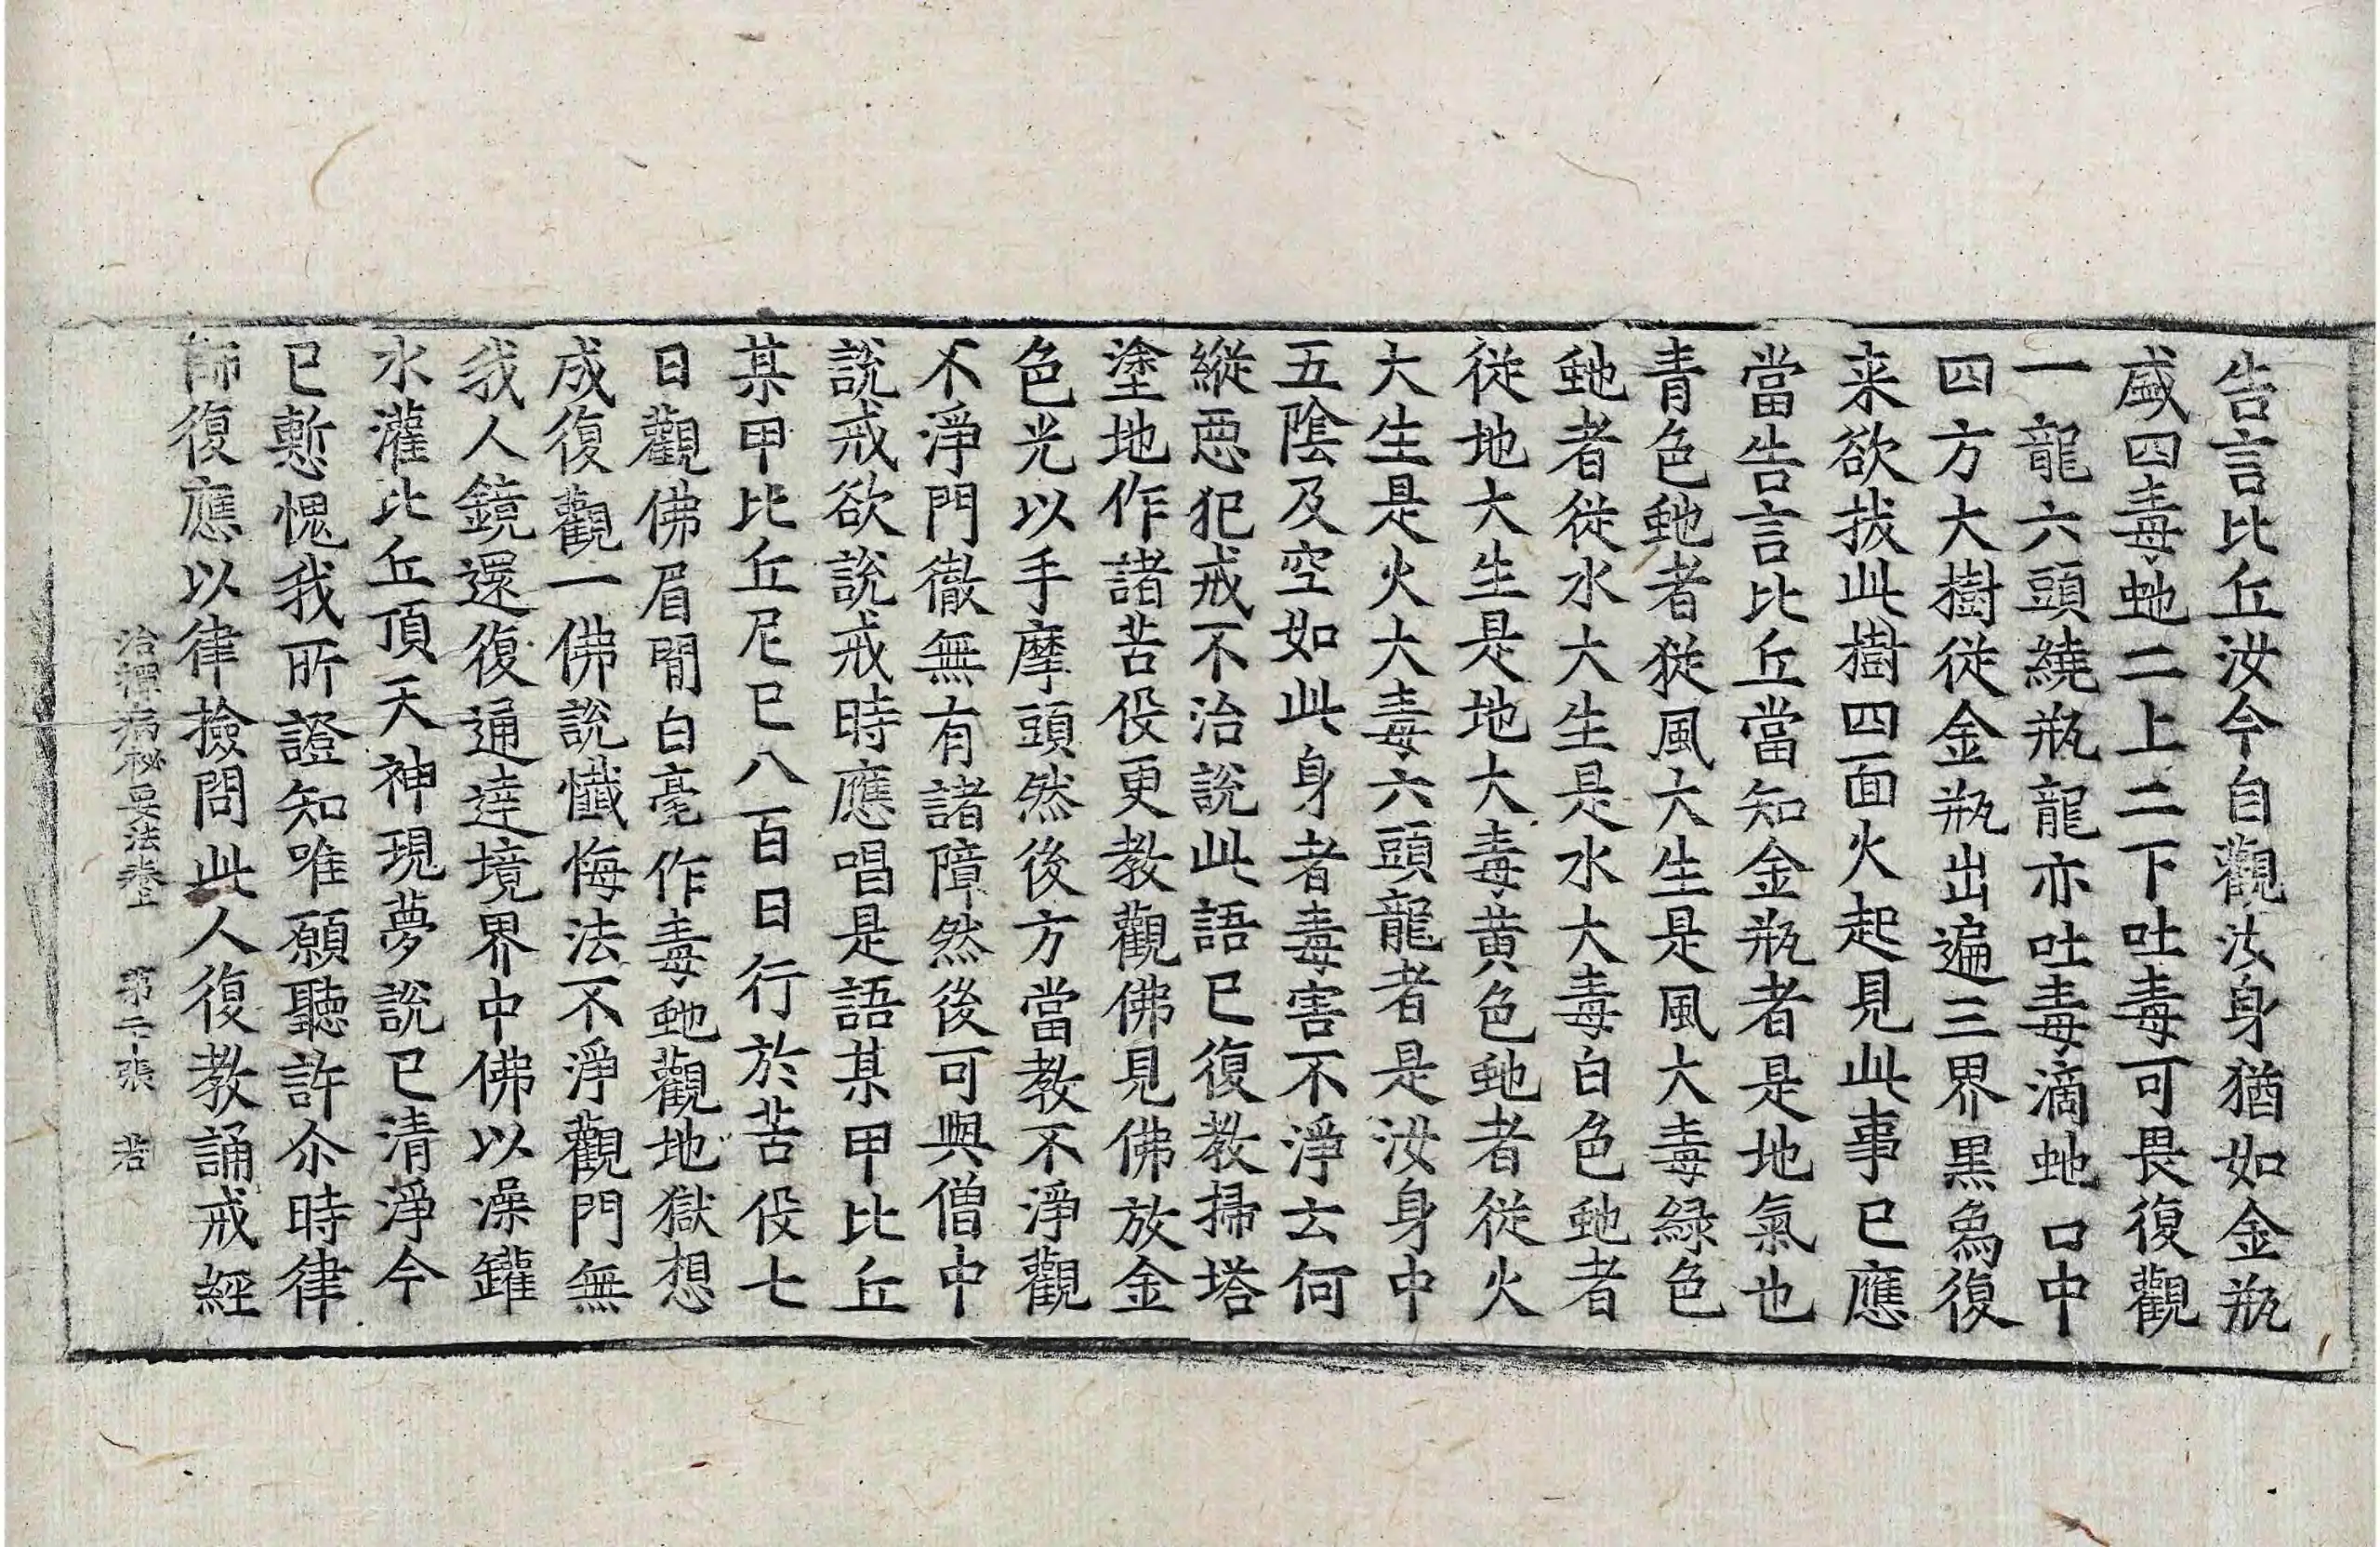 告言比丘汝今自觀汝身猶如金瓶
盛四毒虵二上二下吐毒可畏復觀
一龍六頭繞瓶龍亦吐毒滴虵口中
四方大樹從金瓶出遍三界黑烏復
来欲拔此樹四面火起見此事已應
當告言比丘當知金瓶者是地氣也
青色虵者從風大生是風大毒緑色
虵者從水大生是水大毒白色虵者
從地大生是地大毒黄色虵者從火
大生是火大毒六頭龍者是汝身中
五陰及空如此身者毒害不淨云何
縱惡犯戒不治說此語已復教掃塔
塗地作諸苦役更教觀佛見佛放金
色光以手摩頭然後方當教不淨觀
不淨門徹無有諸障然後可與僧中
說戒欲說戒時應唱是語某甲比丘
某甲比丘尼已八百日行於苦役七
日觀佛眉間白毫作毒虵觀地獄想
成復觀一佛說懺悔法不淨觀門無
我人鏡還復通達境界中佛以澡罐
水灌比丘頂天神現夢說已清淨今
已慙愧我所證知唯願聽許尒時律
師復應以律撿問此人復教誦戒經
治禪病秘要法卷上 第二十張 若